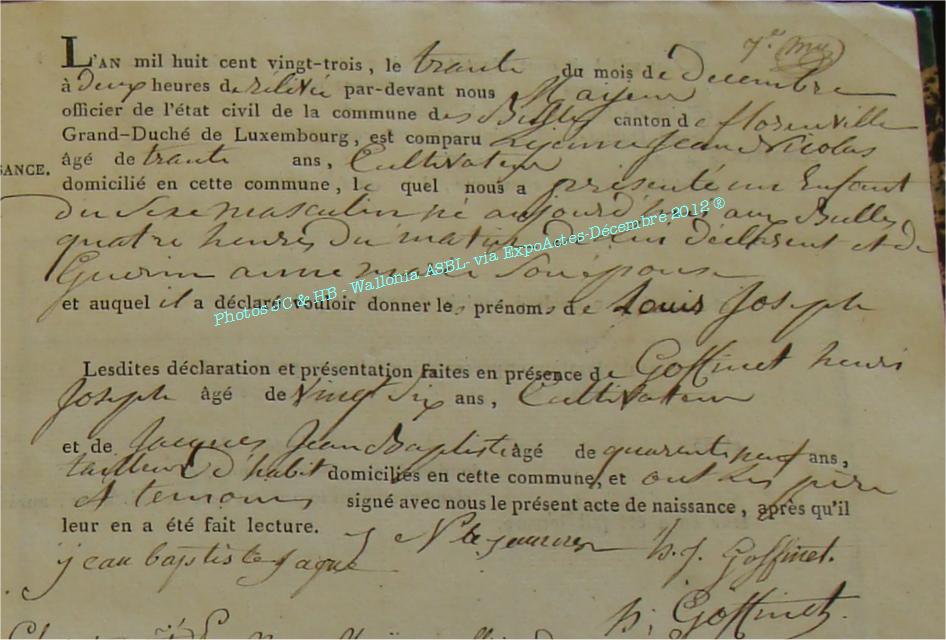 7.e
L'AN mil huit cent vingt-trois, le trante du mois de Decembre
à deux heures de rélévée par-devant nous Mayeur
officier de l'état civil de la commune des Bulles canton de florenville
Grand-Duché de Luxembourg, est comparu Lejeune Jean Nicolas
SANCE. âgé de trante ans, Cultivateur
domicilié en cette commune, le quel nous a présenté un Enfant
du Sexe masculin né aujourd'hui aux Bulles
quatre heures du matin De lui déclarent et de
Guerin anne marie Son épouse
Photos JC & HB - Wallonia ASBL- via ExpoActes-Décembre 2012 ®
et auquel il a déclaré vouloir donner les prénoms de Louis Joseph
Lesdites déclaration et présentation faites en présence de Goffinet henri
Joseph âgé de vingt Six ans, Cultivateur
et de Jacques Jean Baptiste âgé de quarant neuf ans,
tailleur D'habit domiciliés en cette commune, et ont Les père
et temoins signé avec nous le présent acte de naissance, après qu'il
leur en a été fait lecture.
jean baptiste Jaque N lejeune h. j. Goffinet.
h. Goffinet.